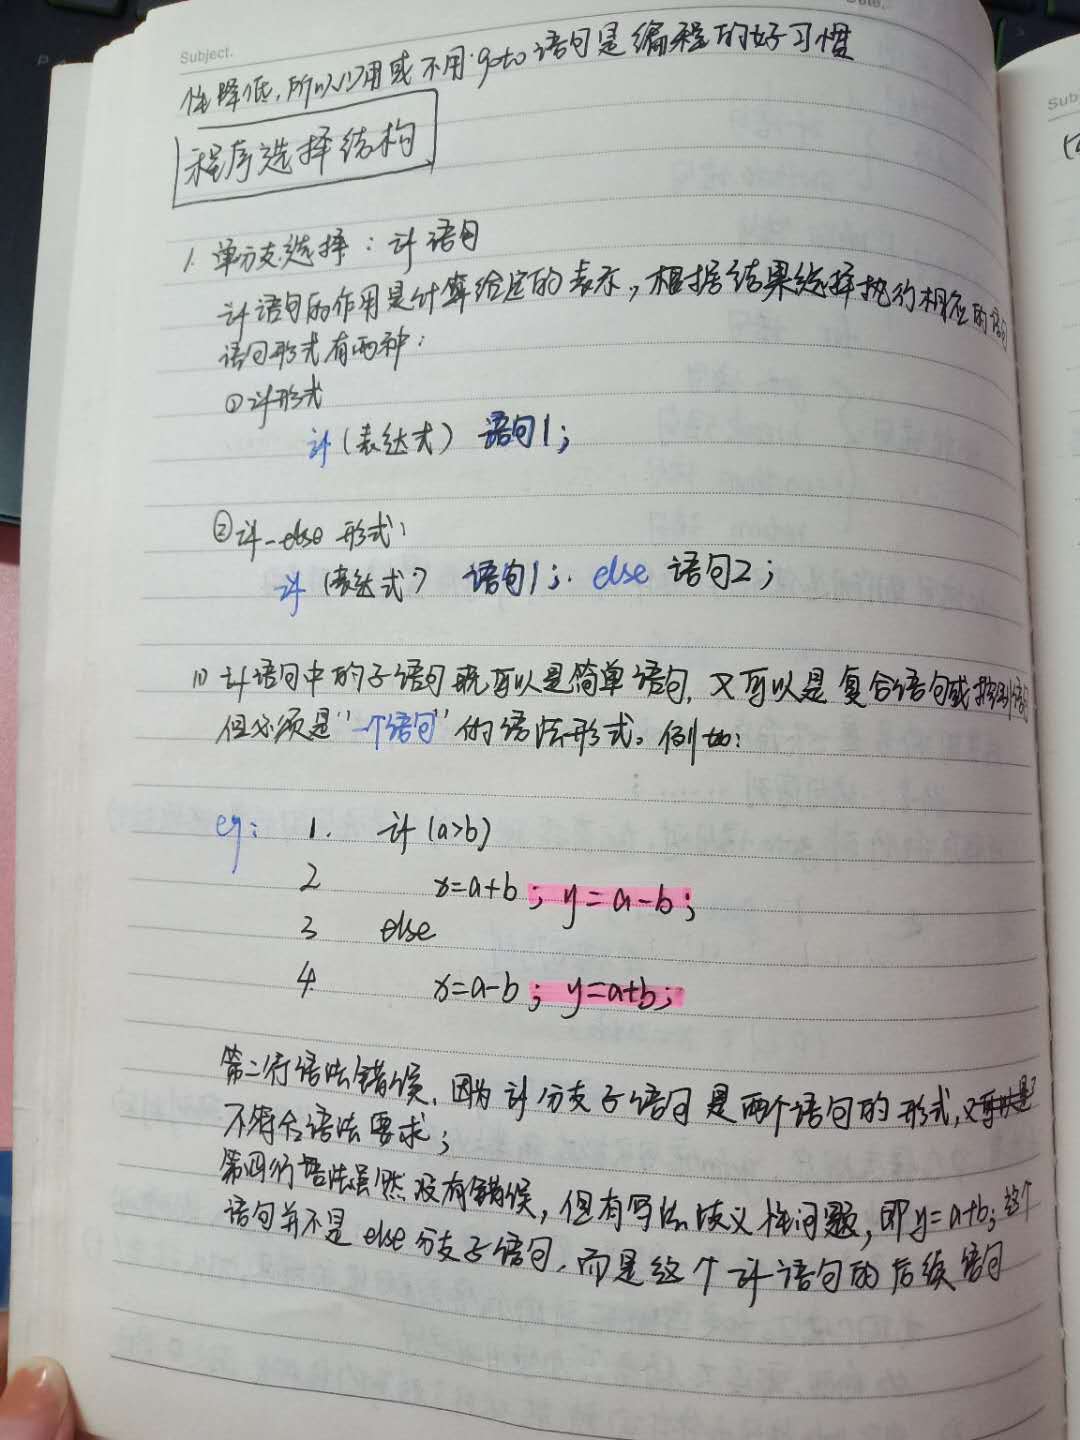 Subject.
性降低,所以少用或不用goto语句是编程的好习惯
程序选择结构
1. 单分支选择:if语句
if语句的作用是计算给定的表示,根据结果选择执行相应的语句
语句形式有两种:
①if形式
if(表达式) 语句1;
②if-else 形式:
if (表达式) 语句1; else 语句2;
(1) if语句中的子语句既可以是简单语句,又可以是复合语句或控制语句
但必须是"一个语句"的语法形式。例如:
eg: 1. if (a>b)
2 x=a+b; y=a-b;
3 else
4 x=a-b; y=a+b;
第二行语法错误,因为if分支子语句是两个语句的形式,
不符合语法要求;
第四行语法虽然没有错误,但有写法歧义性问题,即y=a+b;这个
语句并不是else分支子语句,而是这个if语句的后续语句